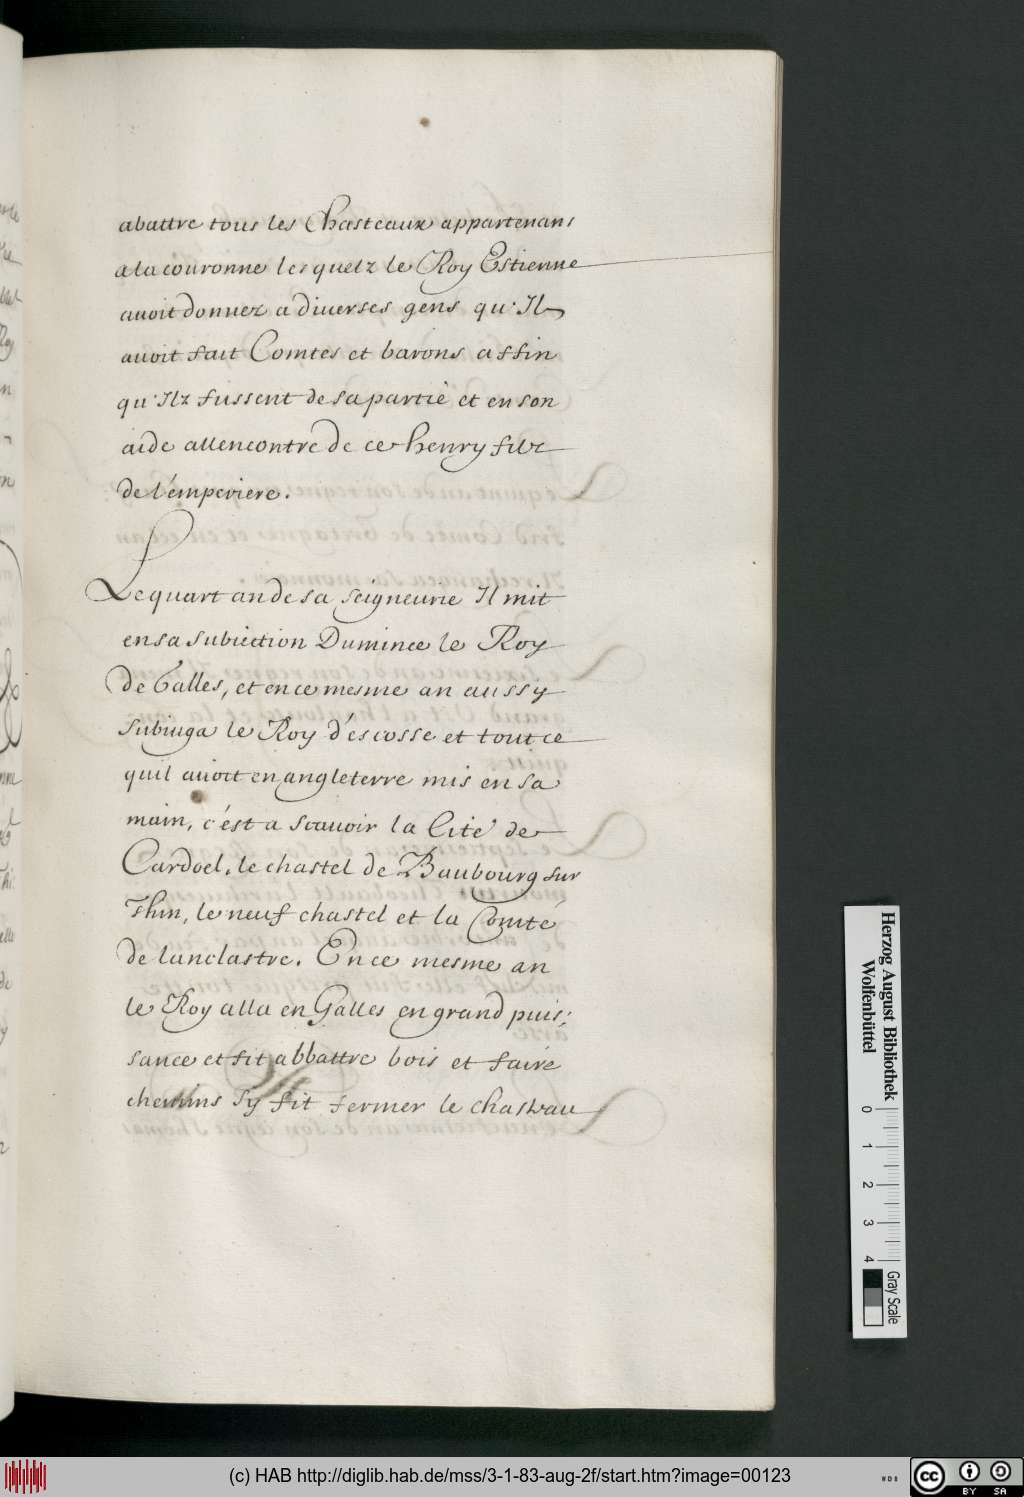 abattre tous les Chasteaux appartenans
a la couronne lesquelz le Roy Estienne
auoit donnez a diuerses gens qu'Il
auoit fait Comtes et barons affin
qu'Ilz fussent de sa partie et en son
aide allencontre de ce henry filz
de l'emperiere.
Le quart an de sa seigneurie Il mit
en sa subiection Dumince le Roy
de Galles, et en ce mesme an aussy
subiuga le Roy d'escosse et tout ce
quil auoit en angleterre mis en sa
main, c'est a scauoir la Cité de
Cardoel, le chastel de Baubourg sur
Thin, le neuf chastel et la Comté
de lanclastre. En ce mesme an
le Roy alla en Galles en grand puis:
sance et fit abbattre bois et faire
chemins Sy fit fermer le chasteau
Herzog August Bibliothek
Wolfenbüttel
0 1 2 3 4
Gray Scale
(c) HAB http://diglib.hab.de/mss/3-1-83-aug-2f/start.htm?image=00123
WDB
cc BY SA